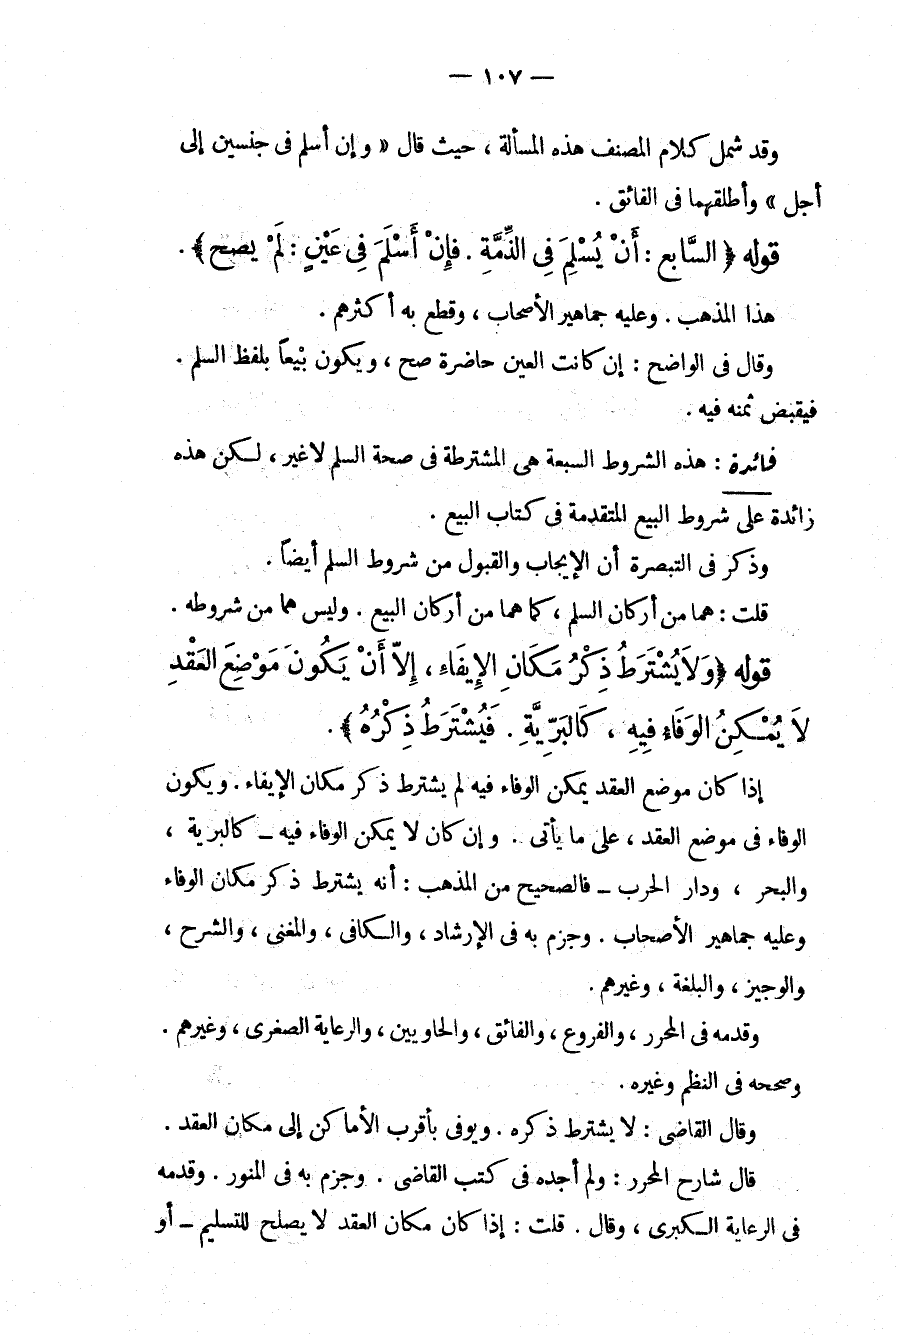 — ١٠٧ —
وقد شمل كلام المصنف هذه المسألة ، حيث قال « وإن أسلم فى جنسين إلى
أجل » وأطلقهما فى الفائق .
قوله ﴿ السَّابع : أَنْ يُسْلِمَ فِى الذِّمَّةِ . فإِنْ أَسْلَمَ فِى عَيْنٍ : لَمْ يصح ﴾ .
هذا المذهب . وعليه جماهير الأصحاب ، وقطع به أكثرهم .
وقال فى الواضح : إن كانت العين حاضرة صح ، ويكون بيعاً بلفظ السلم .
فيقبض ثمنه فيه .
فائدة : هذه الشروط السبعة هى المشترطة فى صحة السلم لاغير ، لكن هذه
زائدة على شروط البيع المتقدمة فى كتاب البيع .
وذكر فى التبصرة أن الإيجاب والقبول من شروط السلم أيضاً .
قلت : هما من أركان السلم ، كما هما من أركان البيع . وليس هما من شروطه .
قوله ﴿ وَلاَ يُشْتَرَطُ ذِكْرُ مَكَانِ الإِيفَاءِ ، إِلاَّ أَنْ يَكُونَ مَوْضِعَ العَقْدِ
لاَ يُمْكِنُ الوَفَاءِ فِيهِ ، كَالبَرِّيَّةِ . فَيُشْتَرَطُ ذِكْرُهُ ﴾ .
إذا كان موضع العقد يمكن الوفاء فيه لم يشترط ذكر مكان الإيفاء . ويكون
الوفاء فى موضع العقد ، على ما يأتى . وإن كان لا يمكن الوفاء فيه ــ كالبرية ،
والبحر ، ودار الحرب ــ فالصحيح من المذهب : أنه يشترط ذكر مكان الوفاء
وعليه جماهير الأصحاب . وجزم به فى الإرشاد ، والكافى ، والمغنى ، والشرح ،
والوجيز ، والبلغة ، وغيرهم .
وقدمه فى المحرر ، والفروع ، والفائق ، والحاويين ، والرعاية الصغرى ، وغيرهم .
وصححه فى النظم وغيره .
وقال القاضى : لا يشترط ذكره . ويوفى بأقرب الأماكن إلى مكان العقد .
قال شارح المحرر : ولم أجده فى كتب القاضى . وجزم به فى المنور . وقدمه
فى الرعاية الكبرى ، وقال . قلت : إذا كان مكان العقد لا يصلح للتسليم ــ أو